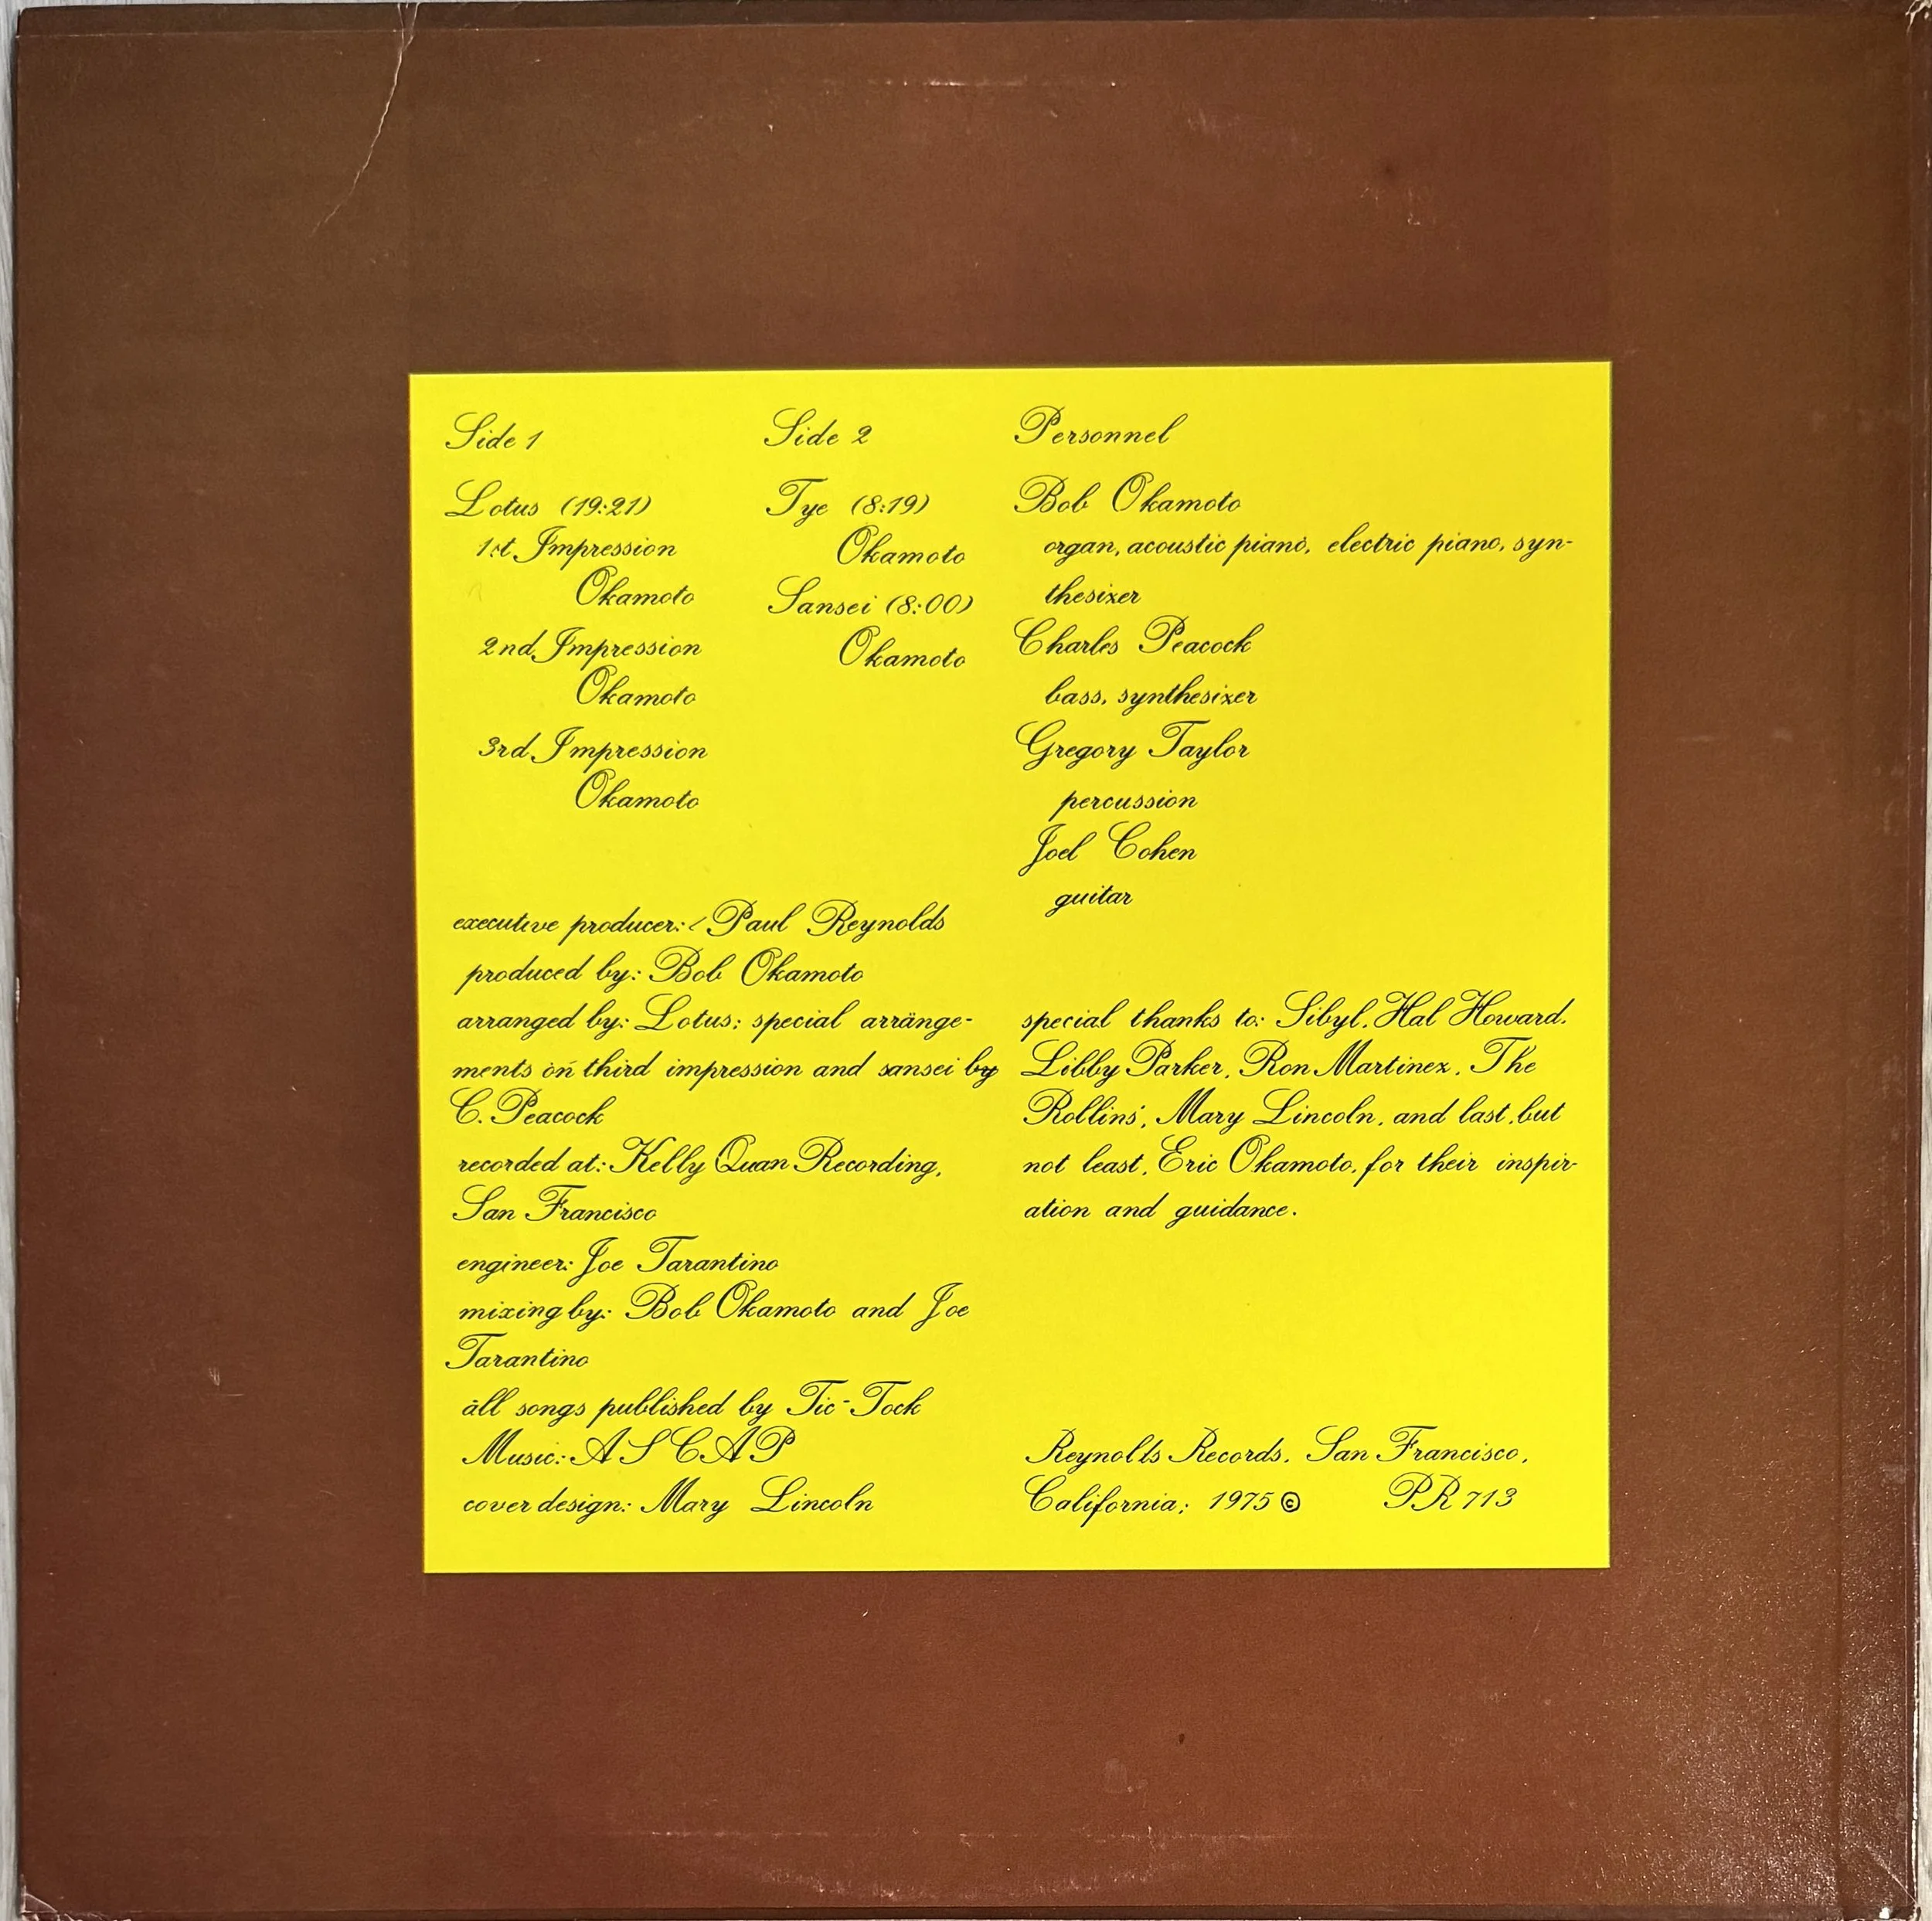 Side 1
Lotus (19:21)
1st Impression
Okamoto
2nd Impression
Okamoto
3rd Impression
Okamoto
Side 2
Tye (8:19)
Okamoto
Sansei (8:00)
Okamoto
Personnel
Bob Okamoto
organ, acoustic piano, electric piano, syn-
thesizer
Charles Peacock
bass, synthesizer
Gregory Taylor
percussion
Joel Cohen
guitar
executive producer: Paul Reynolds
produced by: Bob Okamoto
arranged by: Lotus; special arrange-
ments on third impression and sansei by
C. Peacock
recorded at: Kelly Quan Recording,
San Francisco
engineer: Joe Tarantino
mixing by: Bob Okamoto and Joe
Tarantino
all songs published by Tic-Tock
Music: ASCAP
cover design: Mary Lincoln
special thanks to: Sibyl, Hal Howard,
Libby Parker, Ron Martinez, The
Rollins', Mary Lincoln, and last, but
not least, Eric Okamoto, for their inspir-
ation and guidance.
Reynolds Records, San Francisco,
California; 1975 © PR 713